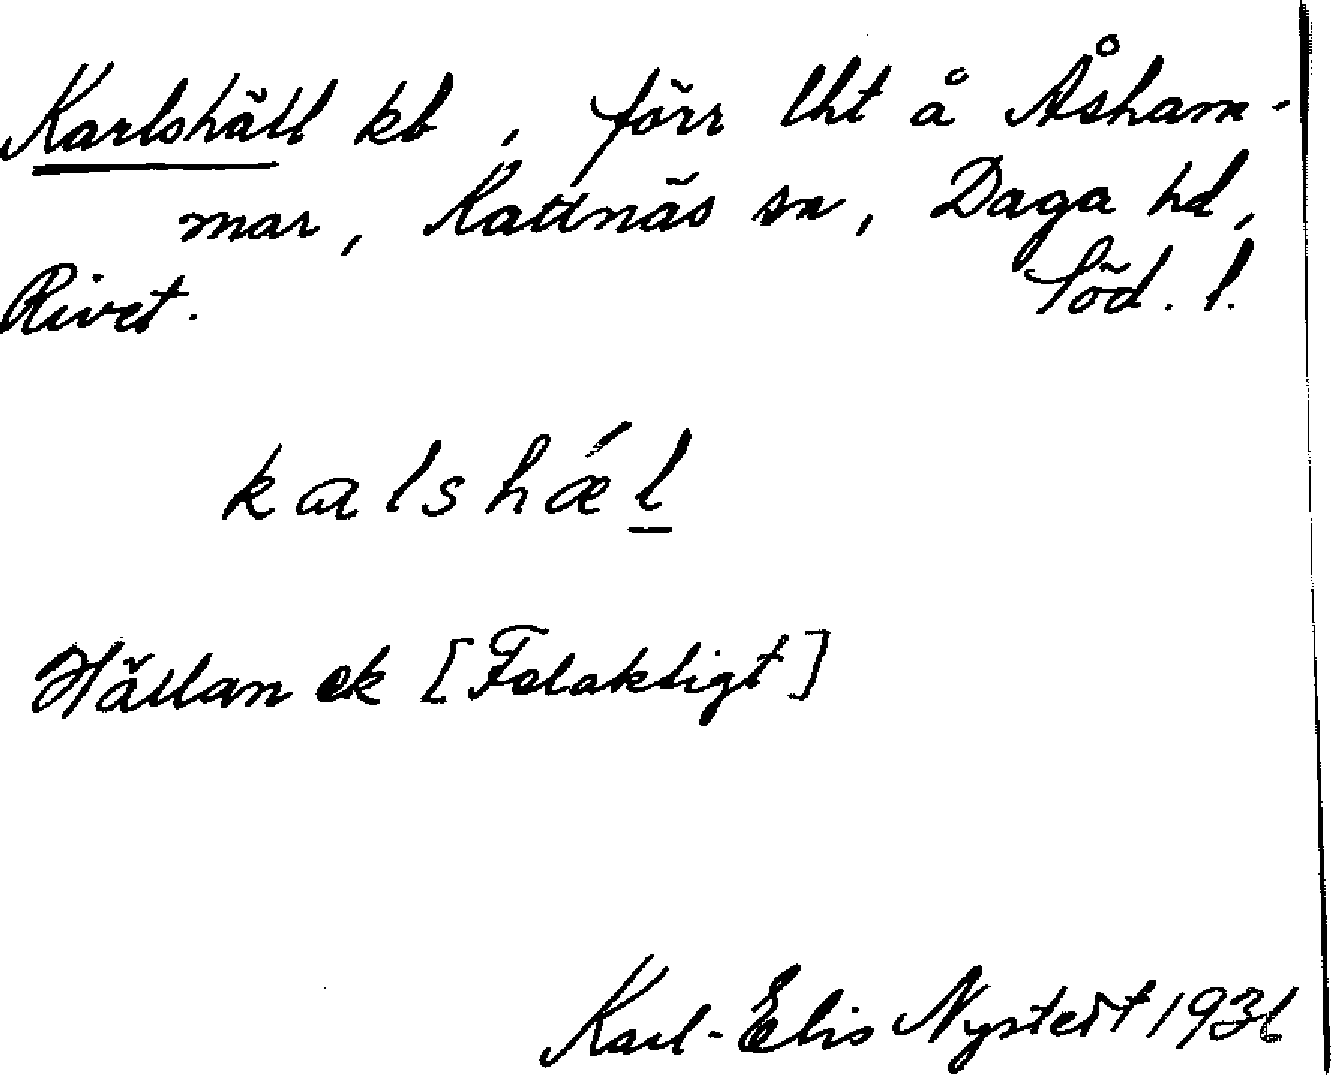 Karlshäll kb, förr lht å Åsham-
mar, Kattnäs sn, Daga hd,
Rivet. Söd. l.
kalshǽl
Hällan ek [Felaktigt]
Karl-Elis Nystert 1936